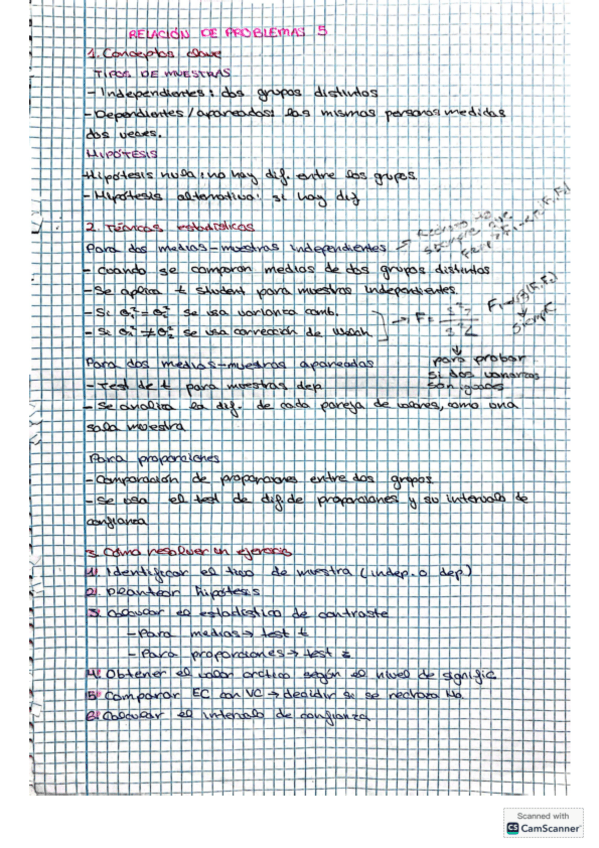 RELACIÓN DE PROBLEMAS 5
1. Conceptos clave
TIPOS DE MUESTRAS
- Independientes: dos grupos distintos
- Dependientes/apareados: las mismas personas medidas
dos veces.
HIPÓTESIS
Hipótesis nula: no hay dif. entre los grupos
- Hipótesis alternativa: sí hay dif
2. Técnicas estadísticas
Para dos medias - muestras independientes
- Cuando se comparan medias de dos grupos distintos
- Se aplica t student para muestras independientes.
- Si σ₁² = σ₂² se usa varianza comb.
- Si σ₁² ≠ σ₂² se usa corrección de Welch
→ F =
siempre
para probar
si dos varianzas
son iguales
Para dos medias - muestras apareadas
- Test de t para muestras dep
- Se analiza la dif. de cada pareja de valores, como una
sola muestra
Para proporciones
- Comparación de proporciones entre dos grupos
- Se usa el test de dif. de proporciones y su intervalo de
confianza
3. Cómo resolver un ejercicio
1. Identificar el tipo de muestra (indep. o dep)
2. Plantear hipótesis
3. Calcular el estadístico de contraste
- Para medias → test t
- Para proporciones → test z
4. Obtener el valor crítico según el nivel de signific
5. Comparar EC con VC → decidir si se rechaza H₀
6. Calcular el intervalo de confianza
Scanned with
CS CamScanner